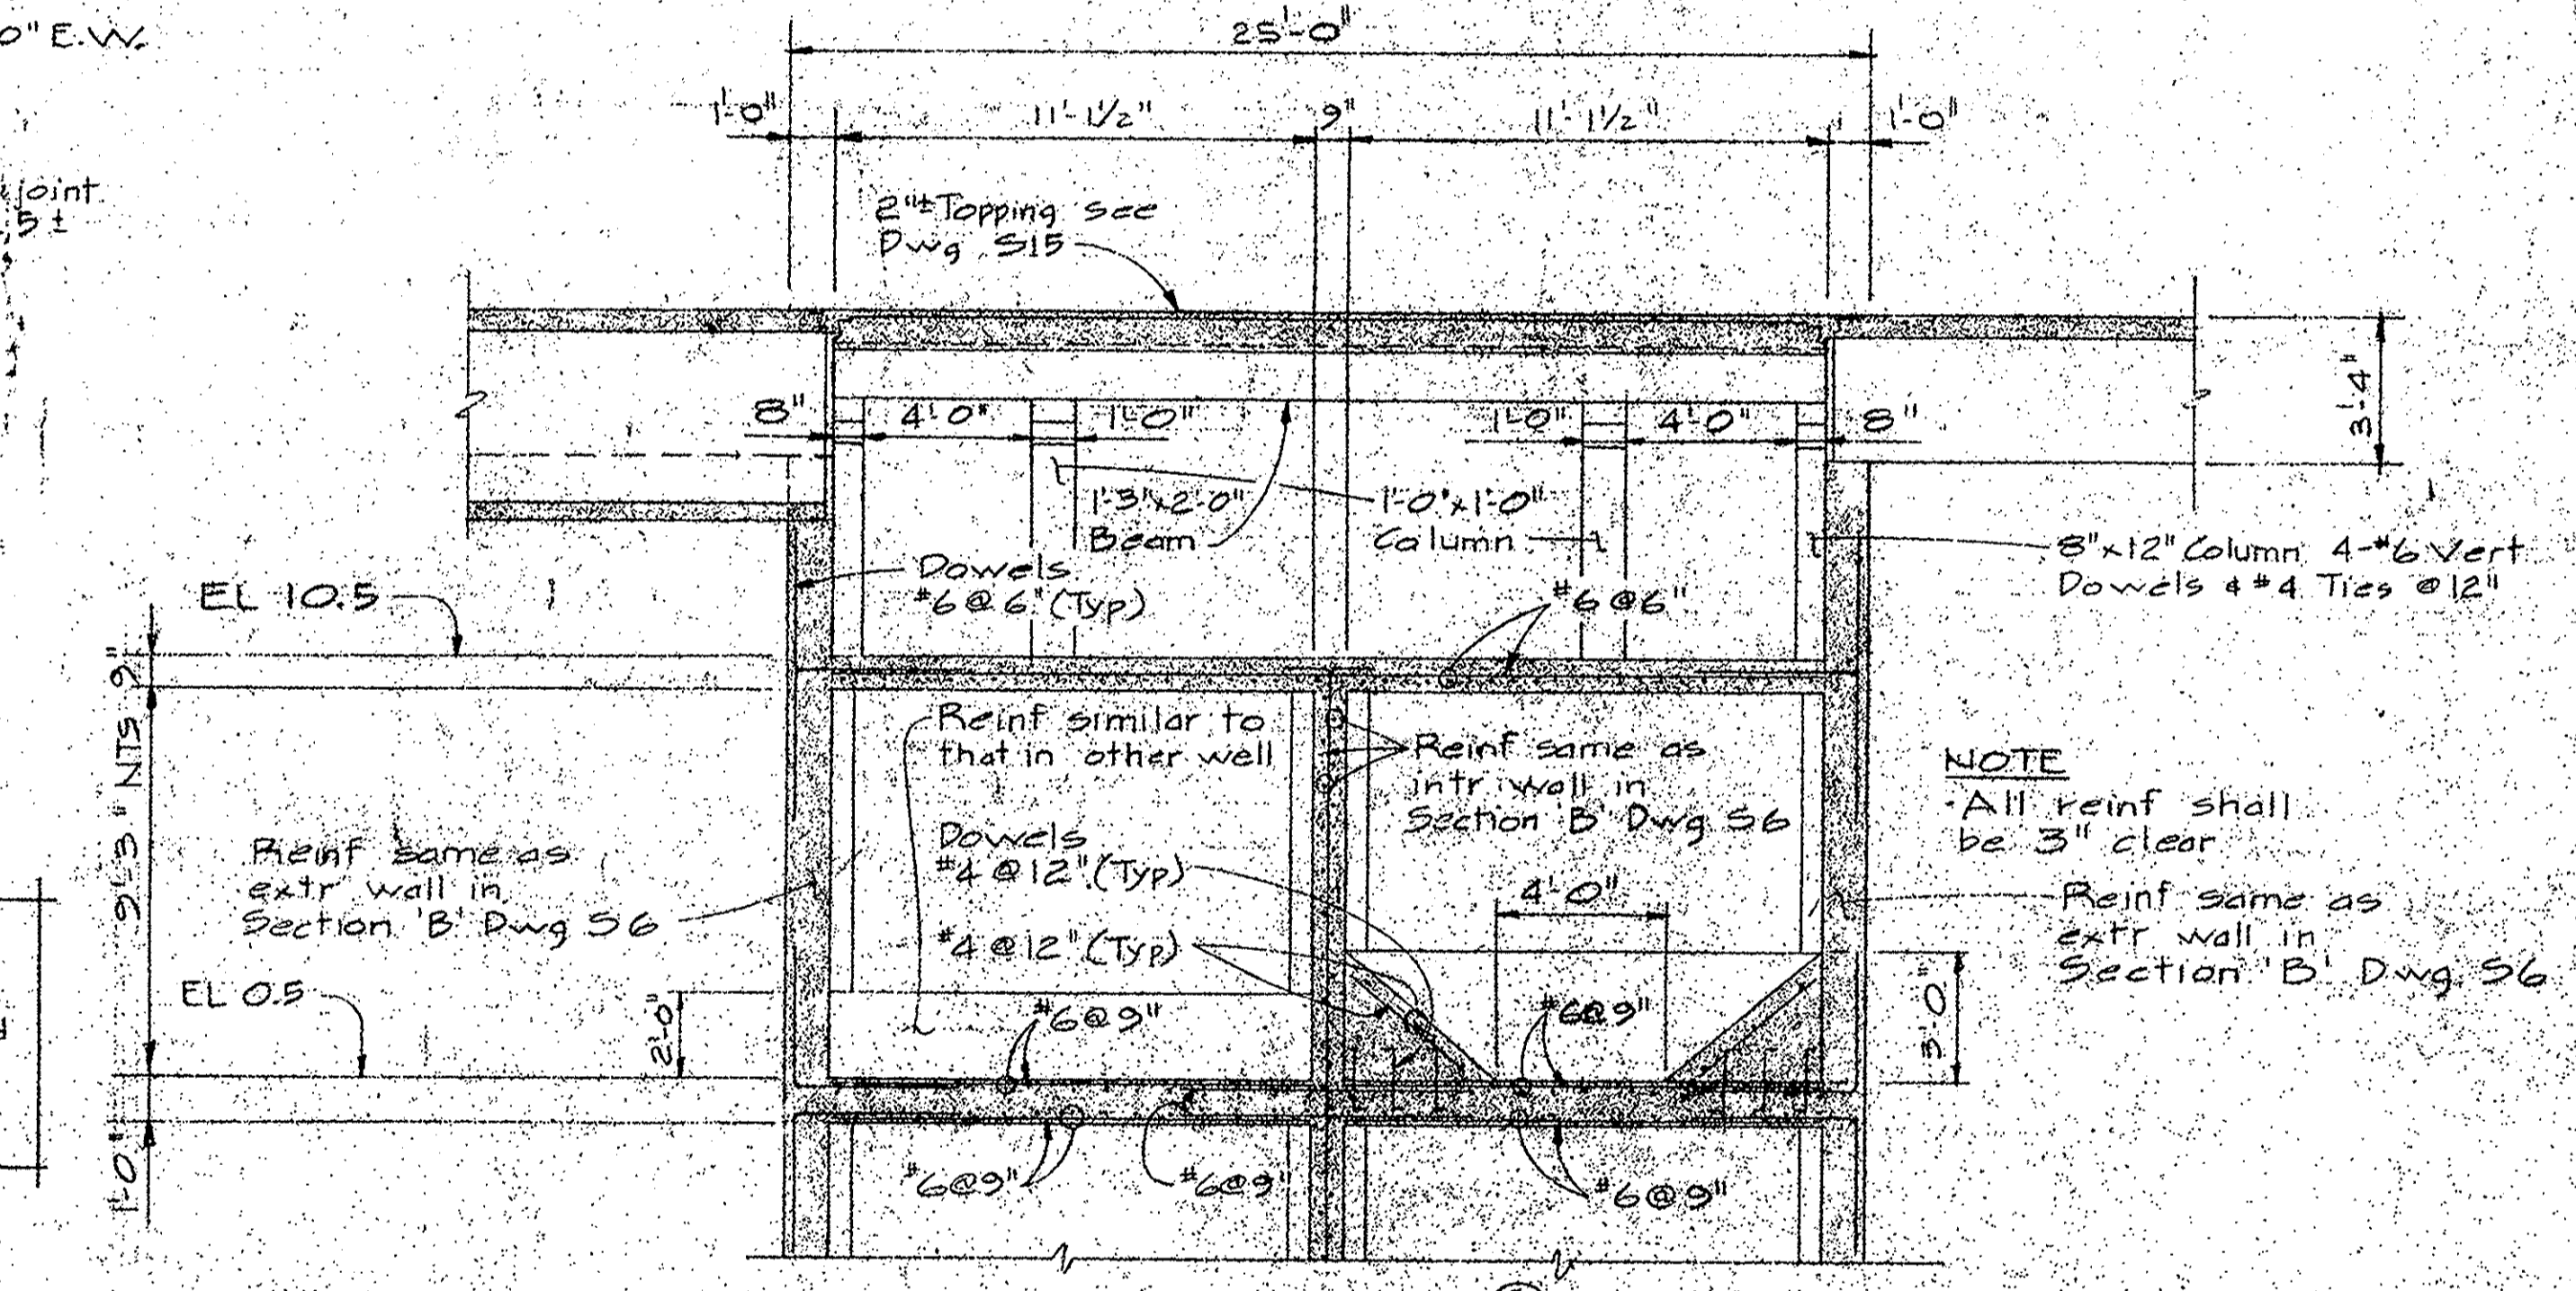 0" E.W.
25'-0"
1'-0"
11'-1 1/2"
9"
11'-1 1/2"
1'-0"
joint
5 ±
2"± Topping see
Dwg S15
8"
4'-0"
1'-0"
1'-0"
4'-0"
8"
3'-4"
1'-3"x2'-0"
Beam
1'-0"x1'-0"
Column
8"x12" Column 4-#6 Vert
Dowels & #4 Ties @ 12"
Dowels
#6 @ 6" (Typ)
#6 @ 6"
EL 10.5
9"
9'-3" NTS
Reinf similar to
that in other well
Reinf same as
intr wall in
Section 'B' Dwg S6
NOTE
All reinf shall
be 3" clear
Dowels
#4 @ 12" (Typ)
Reinf same as
extr wall in
Section 'B' Dwg S6
4'-0"
Reinf same as
extr wall in
Section 'B' Dwg S6
#4 @ 12" (Typ)
EL 0.5
2'-0"
#6@9"
#6@9"
3'-0"
1'-0"
#6@9"
#6@9"
#6@9"